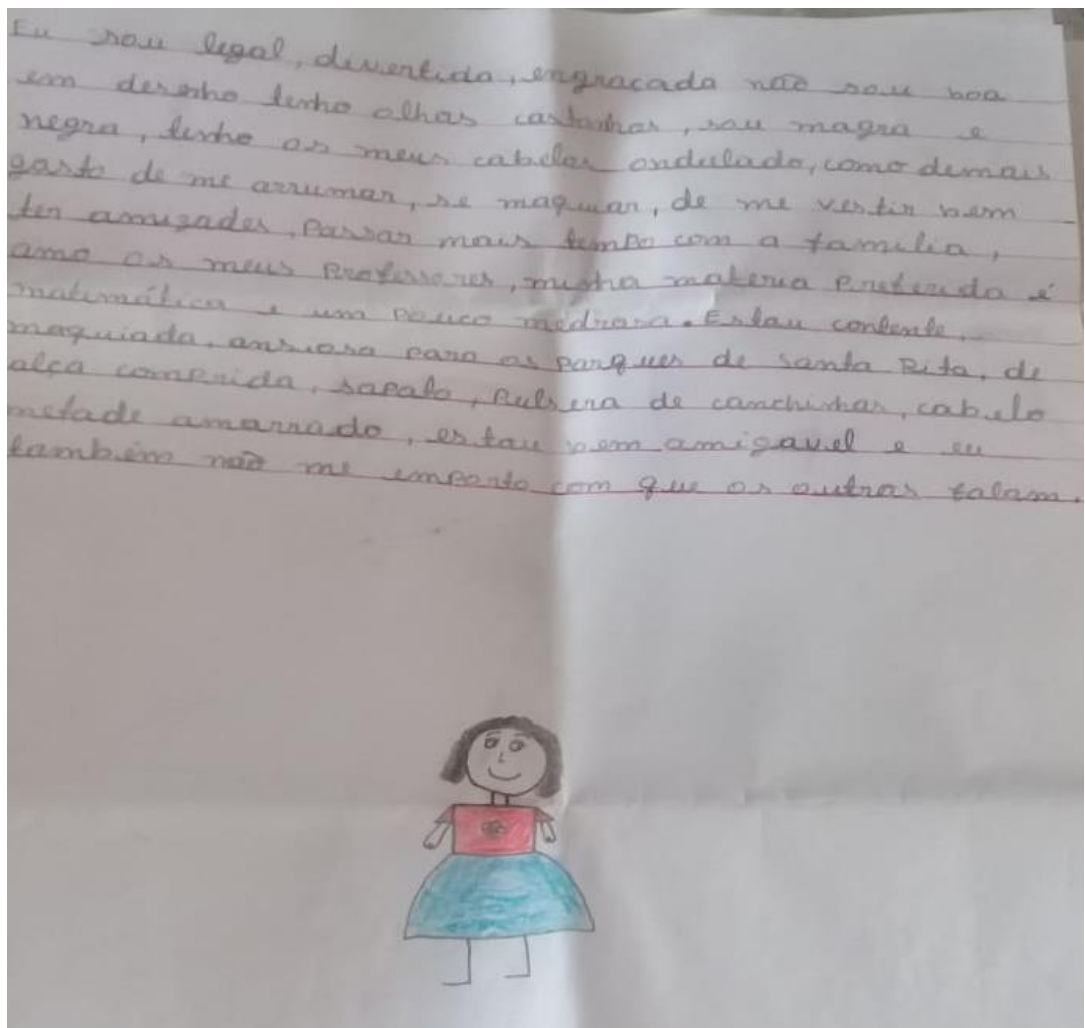 Eu sou legal, divertida, engraçada não sou boa
em desenho tenho olhos castanhos, sou magra e
negra, tenho os meus cabelos ondulado, como demais
gosto de me arrumar, se maquiar, de me vestir bem
ter amizades, passar mais tempo com a família,
amo os meus professores, minha materia preferida é
matemática e um pouco medrosa. Estou contente,
maquiada, ansiosa para os parques de santa Rita, de
alça comprida, sapato, pulsera de conchinhas, cabelo
metade amarrado, estou bem amigavel e eu
também não me importo com que os outros falam.